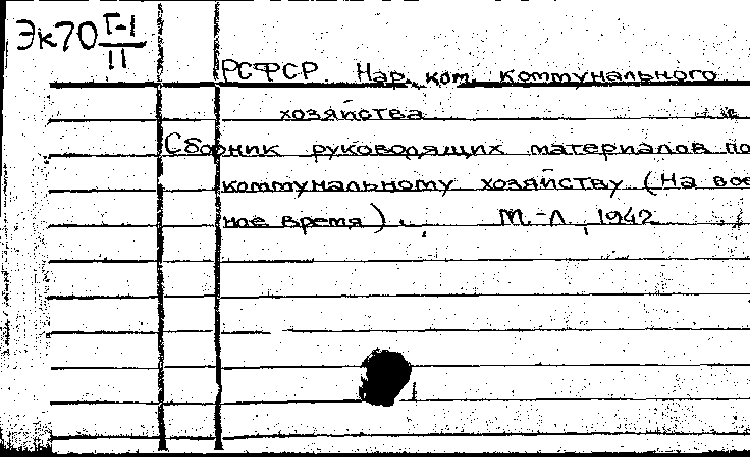 Эк70 Г-I
II
РСФСР. Нар. ком. коммунального
хозяйства
Сборник руководящих материалов по
коммунальному хозяйству (На вое
ное время). М.-Л., 1942